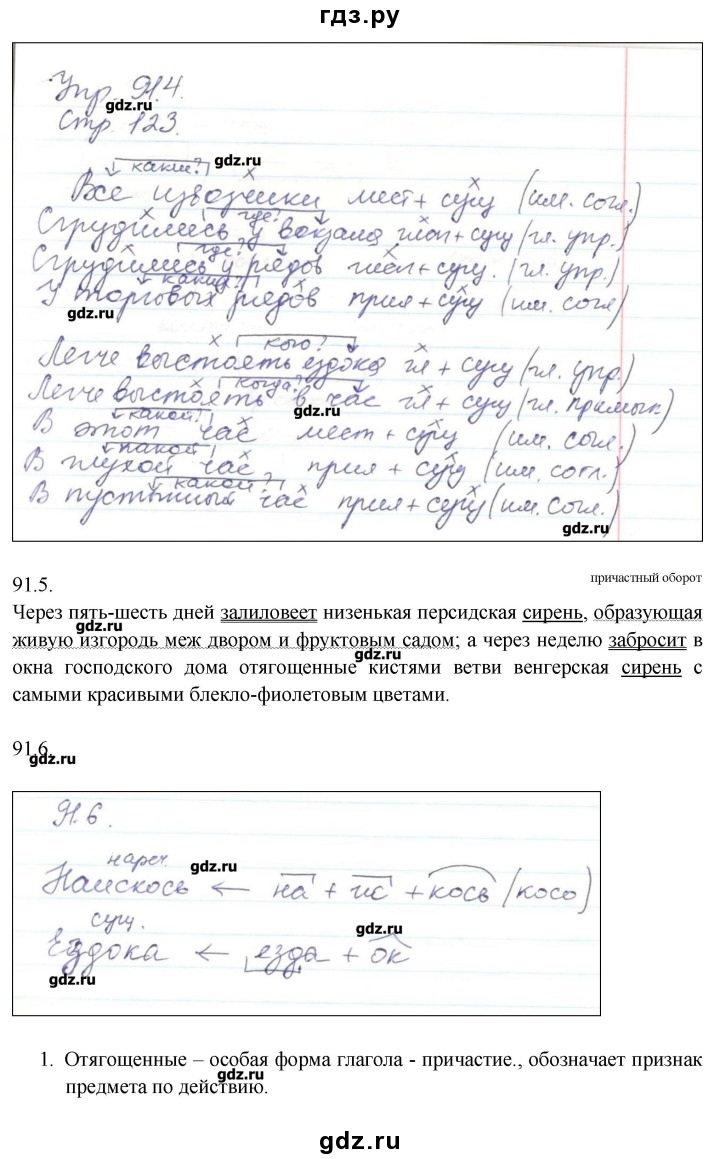 гдз.ру
Упр. 91.4.
gdz.ru
Стр. 123.
gdz.ru
какие?
Все извозчики мест + сущ (им. согл.)
где?
Сгрудились у вокзала глаг + сущ (гл. упр.)
где?
Сгрудились у рядов глаг + сущ. (гл. упр.)
каких?
У торговых рядов прил + сущ (им. согл)
gdz.ru
кого?
Легче выстоять ездока гл + сущ (гл. упр.)
когда?
Легче выстоять в час гл + сущ (гл. примык)
gdz.ru
какой?
В этот час мест + сущ (им. согл.)
какой?
В глухой час, прил + сущ (им. согл.)
какой?
В пустынный час прил + сущ (им. согл.)
gdz.ru
91.5.
причастный оборот
Через пять-шесть дней залиловеет низенькая персидская сирень, образующая
gdz.ru
живую изгородь меж двором и фруктовым садом; а через неделю забросит в
gdz.ru
окна господского дома отягощенные кистями ветви венгерская сирень с
самыми красивыми блекло-фиолетовым цветами.
91.6.
gdz.ru
91.6.
нареч.
gdz.ru
Наискось ← на + ис + кось (косо)
сущ.
gdz.ru
Ездока ← езда + ок
gdz.ru
1. Отягощенные – особая форма глагола - причастие., обозначает признак
gdz.ru
предмета по действию.
gdz.ru